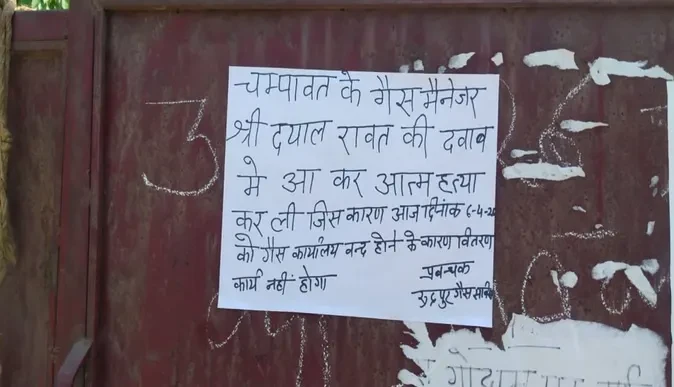 चम्पावत के गैस मैनेजर
श्री दयाल रावत की दवाब
मे आ कर आत्म हत्या
कर ली जिस कारण आज दिनांक 6-4-26
को गैस कार्यालय बन्द होने के कारण वितरण
कार्य नहीं होगा
प्रबन्धक
रुद्रपुर गैस सर्विस
3
गोदाम